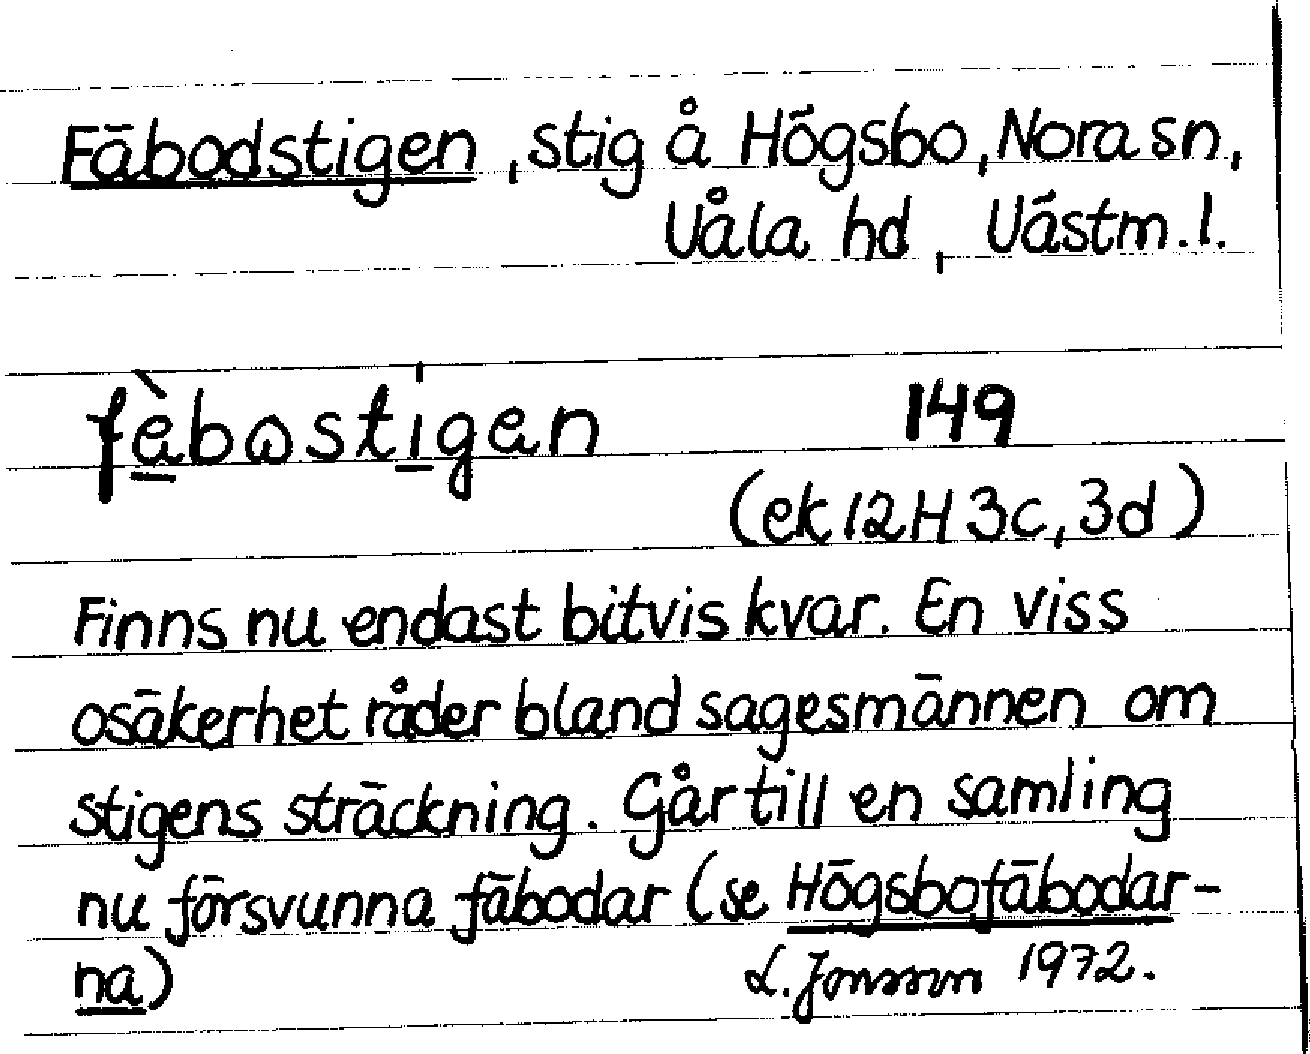 Fäbodstigen, stig å Högsbo, Nora sn,
Våla hd, Västm. l.
fèbωstigen 149
(ek 12H 3c, 3d)
Finns nu endast bitvis kvar. En viss
osäkerhet råder bland sagesmännen om
stigens sträckning. Går till en samling
nu försvunna fäbodar (se Högsbofäbodar-
na) L. Jonsson 1972.